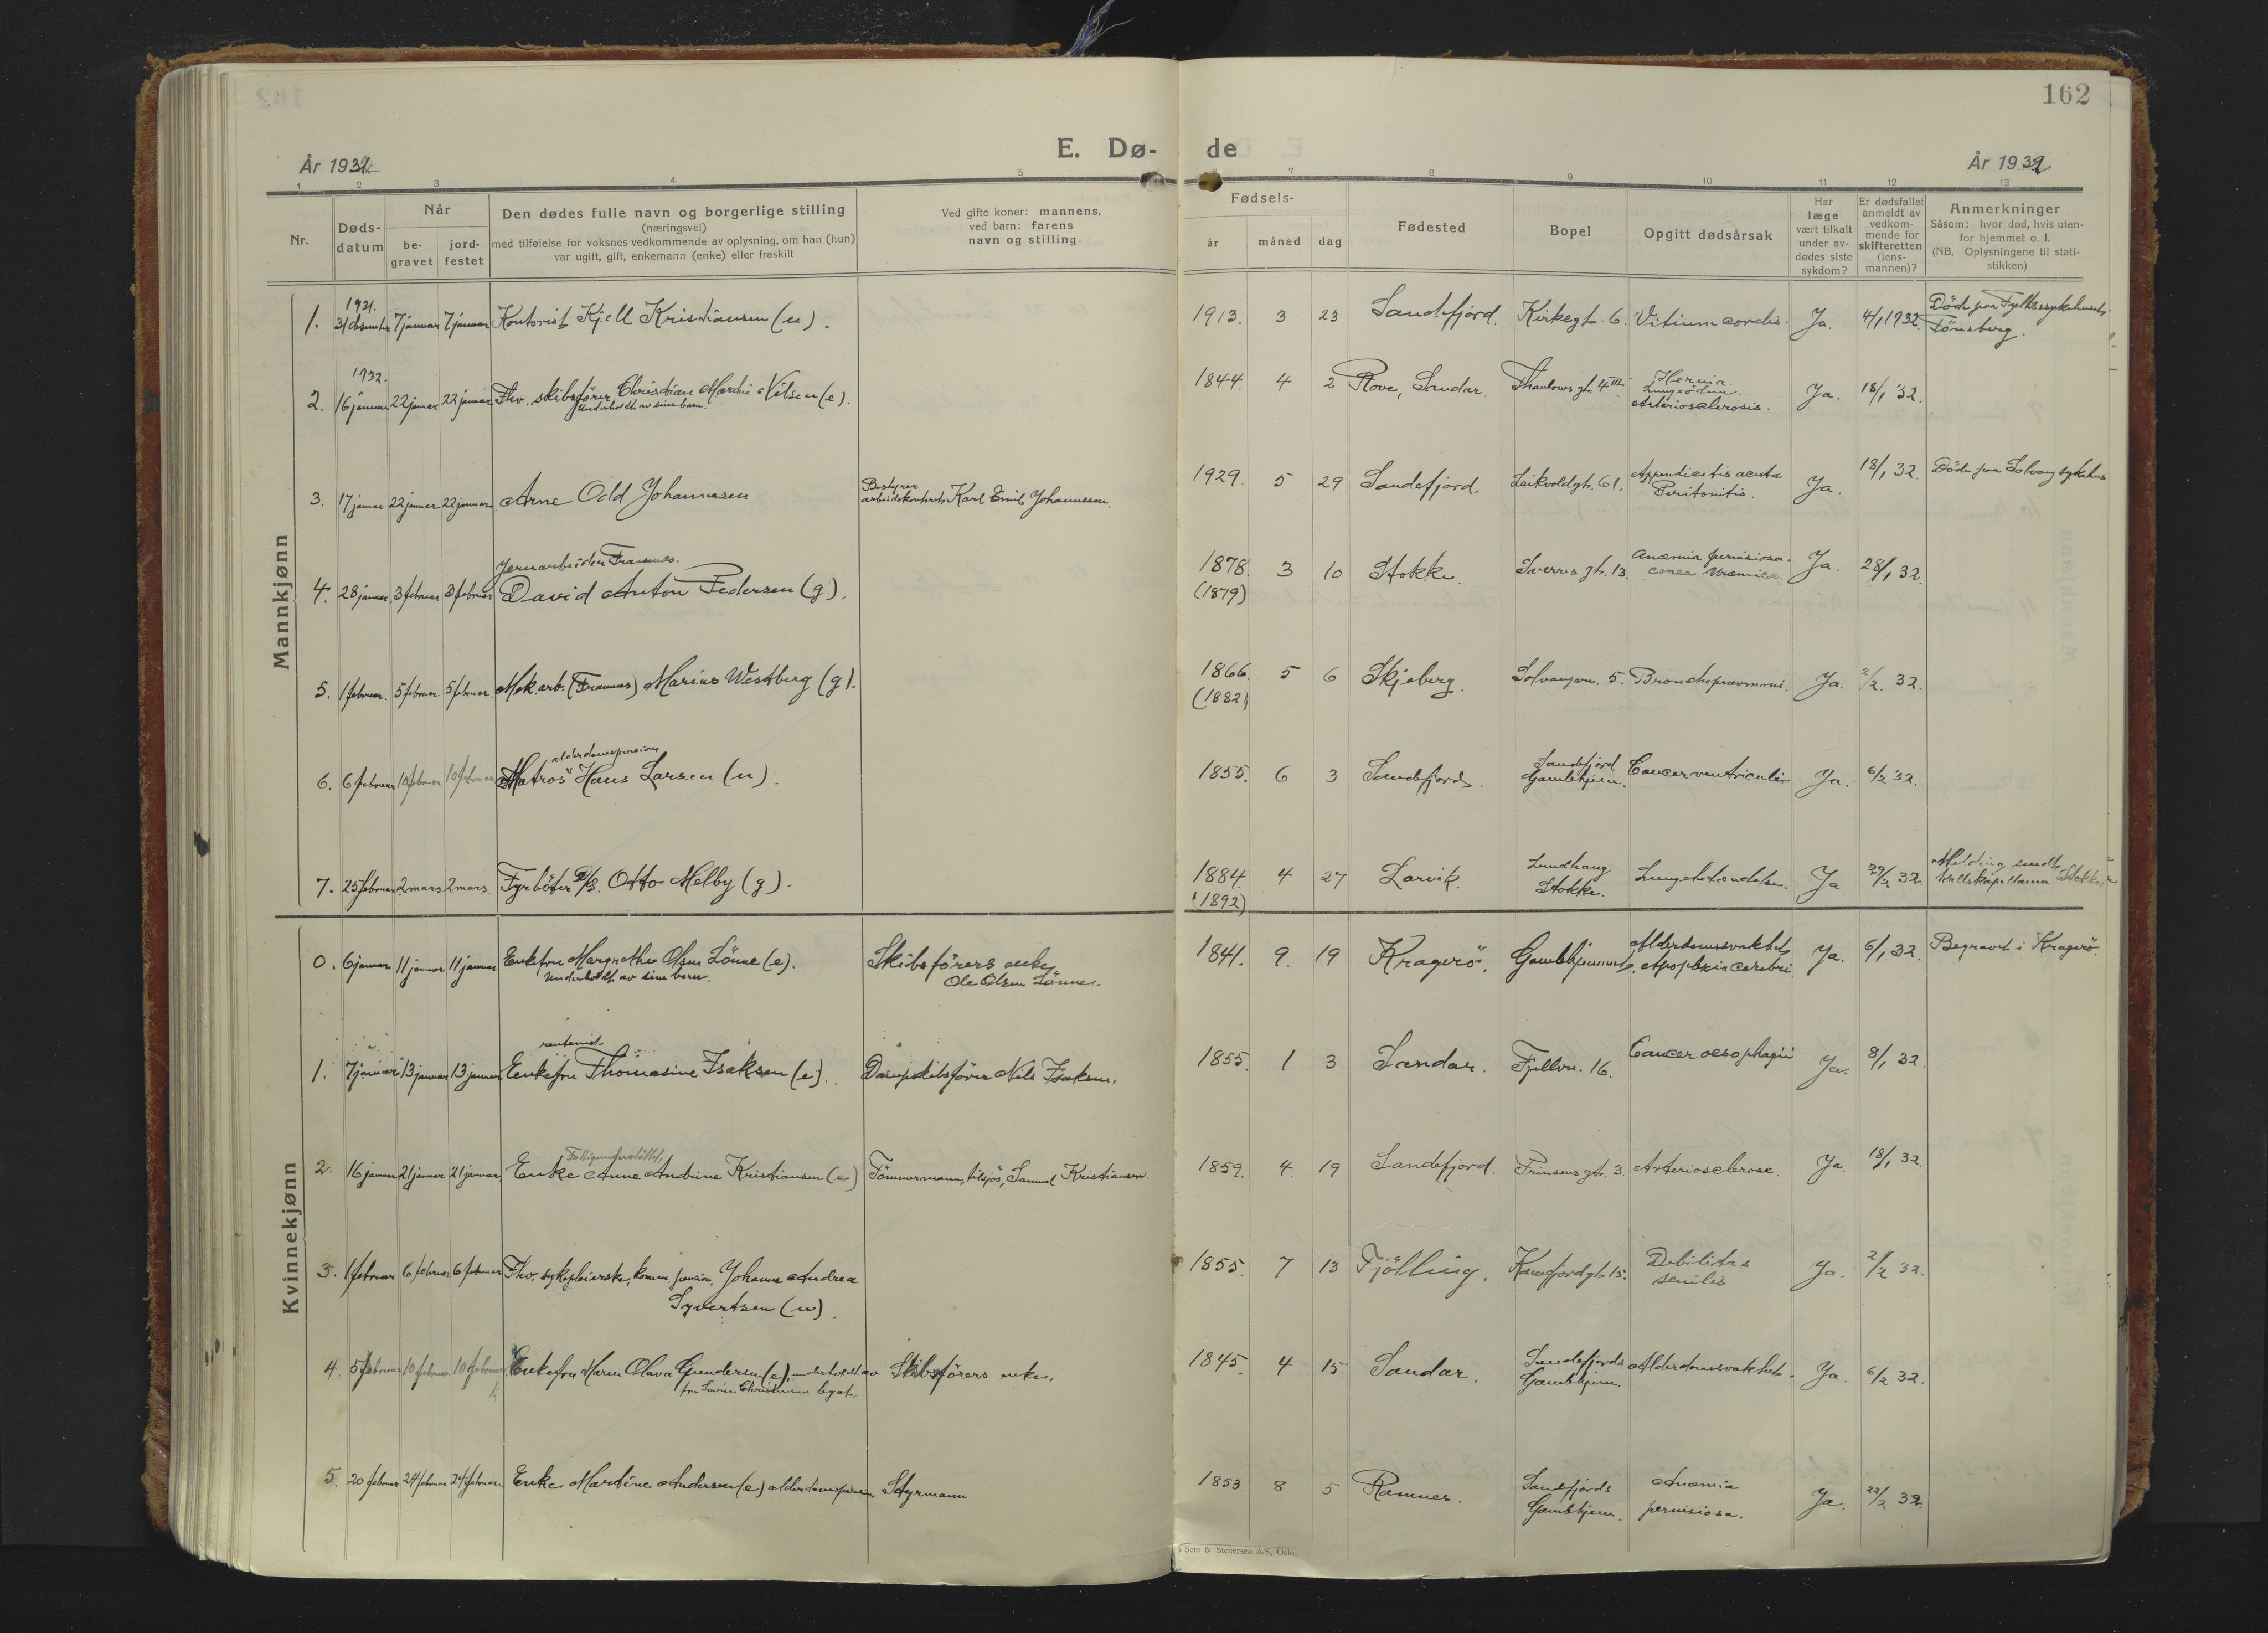 162
E. Dø- de
År 1932
År 1932
1 2 3 4 5 6 7 8 9 10 11 12 13
Nr.
Døds-
datum
Når
be-
gravet
jord-
festet
Den dødes fulle navn og borgerlige stilling
(næringsvei)
med tilføielse for voksnes vedkommende av oplysning, om han (hun)
var ugift, gift, enkemann (enke) eller fraskilt
Ved gifte koner: mannens,
ved barn: farens
navn og stilling
Fødsels-
år måned dag
Fødested
Bopel
Opgitt dødsårsak
Har
læge
vært tilkalt
under av-
dødes siste
sykdom?
Er dødsfallet
anmeldt av
vedkom-
mende for
skifteretten
(lens-
mannen)?
Anmerkninger
Såsom: hvor død, hvis uten-
for hjemmet o. l.
(NB. Oplysningene til stati-
stikken)
Mannkjønn
1931.
1. 31 desember 7 januar 7 januar Kontorist Kjell Kristiansen (u). 1913. 3 23 Sandefjord. Kirkegt. 6. Vitium cordis. Ja. 4/1 1932. Död paa Fylkessykehuset,
Tönsberg.
1932.
2. 16 januar 22 januar 22 januar Fhv. skibsförer Christian Martin Nilsen (e). 1844. 4 2 Rove, Sandar. Thaulows gt. 4 Hernia.
Lungeödem.
Arteriosclerosis. Ja. 18/1 32.
Underholdt av sine barn.
3. 17 januar 22 januar 22 januar Arne Odd Johannesen Bestyrer
arbeidskontoret Karl Emil Johannesen. 1929. 5 29 Sandefjord. Leikvoldgt. 61. Appendicitis acuta
Peritonitis. Ja. 18/1 32. Död paa Solvang sykehus
Jernarbeider Framnes.
4. 28 januar 3 februar 3 februar David Anton Pedersen (g). 1878. 3 10 Stokke. Sverres gt. 13. Anæmia pernisiosa.
coma uræmica. Ja. 28/1 32.
(1879)
5. 1 februar. 5 februar 5 februar. Mek. arb. (Framnes) Marius Westberg (g). 1866. 5 6 Skjeberg. Solvangvn. 5. Bronchopneumoni. Ja. 2/2. 32.
(1882)
alderdomspension
6. 6 februar 10 februar 10 februar Matros Hans Larsen (u). 1855. 6 3 Sandefjord. Sandefjord
Gamlehjem. Cancer ventriculi. Ja. 6/2 32.
7. 25 februar 2 mars 2 mars. Fyrböter Otto Melby (g). 1884. 4 27 Larvik. Lundhaug
Stokke. Lungebetændelse. Ja 29/2 32. Melding sendt
Stokke.
(1892)
Kvinnekjønn
0. 6 januar 11 januar 11 januar Enkefru Margrethe Olsen Lönne (e). Skibsförers enke
Ole Olsen Lönne. 1841. 9. 19 Kragerö. Gamlehjemmet. Alderdomssvakhet
Apoplexia cerebri. Ja. 6/1 32. Begravet i Kragerö.
Underholdt av sine barn.
rentenist.
1. 7 januar 13 januar 13 januar Enkefru Thomasine Isaksen (e). Dampskibsförer Nils Isaksen. 1855. 1 3 Sandar. Fjellvn. 16. Cancer oesophagii Ja. 8/1 32.
Fattigunderstöttet.
2. 16 januar 21 januar 21 januar Enke Anne Andrine Kristiansen (e) Tömmermann, tilsjös, Samuel Kristiansen. 1859. 4. 19 Sandefjord. Prinsens gt. 3. Arteriosclerose. Ja. 18/1 32.
3. 1 februar 6 februar 6 februar Fhv. sykepleierske, komm. pension, Johanna Andrea
Syvertsen (u). 1855. 7 13 Tjölling. Kamfjordgt. 15. Debilitas
senilis Ja. 2/2 32.
4. 5 februar 10 februar 10 februar Enkefru Maren Olava Gundersen (e), underholdt av
fru Lovise Christensens legat. Skibsförers enke. 1845. 4 15 Sandar. Sandefjords
Gamlehjem. Alderdomssvakhet. Ja. 6/2 32.
5. 20 februar 24 februar 24 februar. Enke Martine Andersen (e) alderdomspension Styrmann 1853. 8 5 Ramnes. Sandefjords
Gamlehjem. Anæmia
pernisiosa. Ja. 22/2 32.
Sem & Stenersen A/S, Oslo.